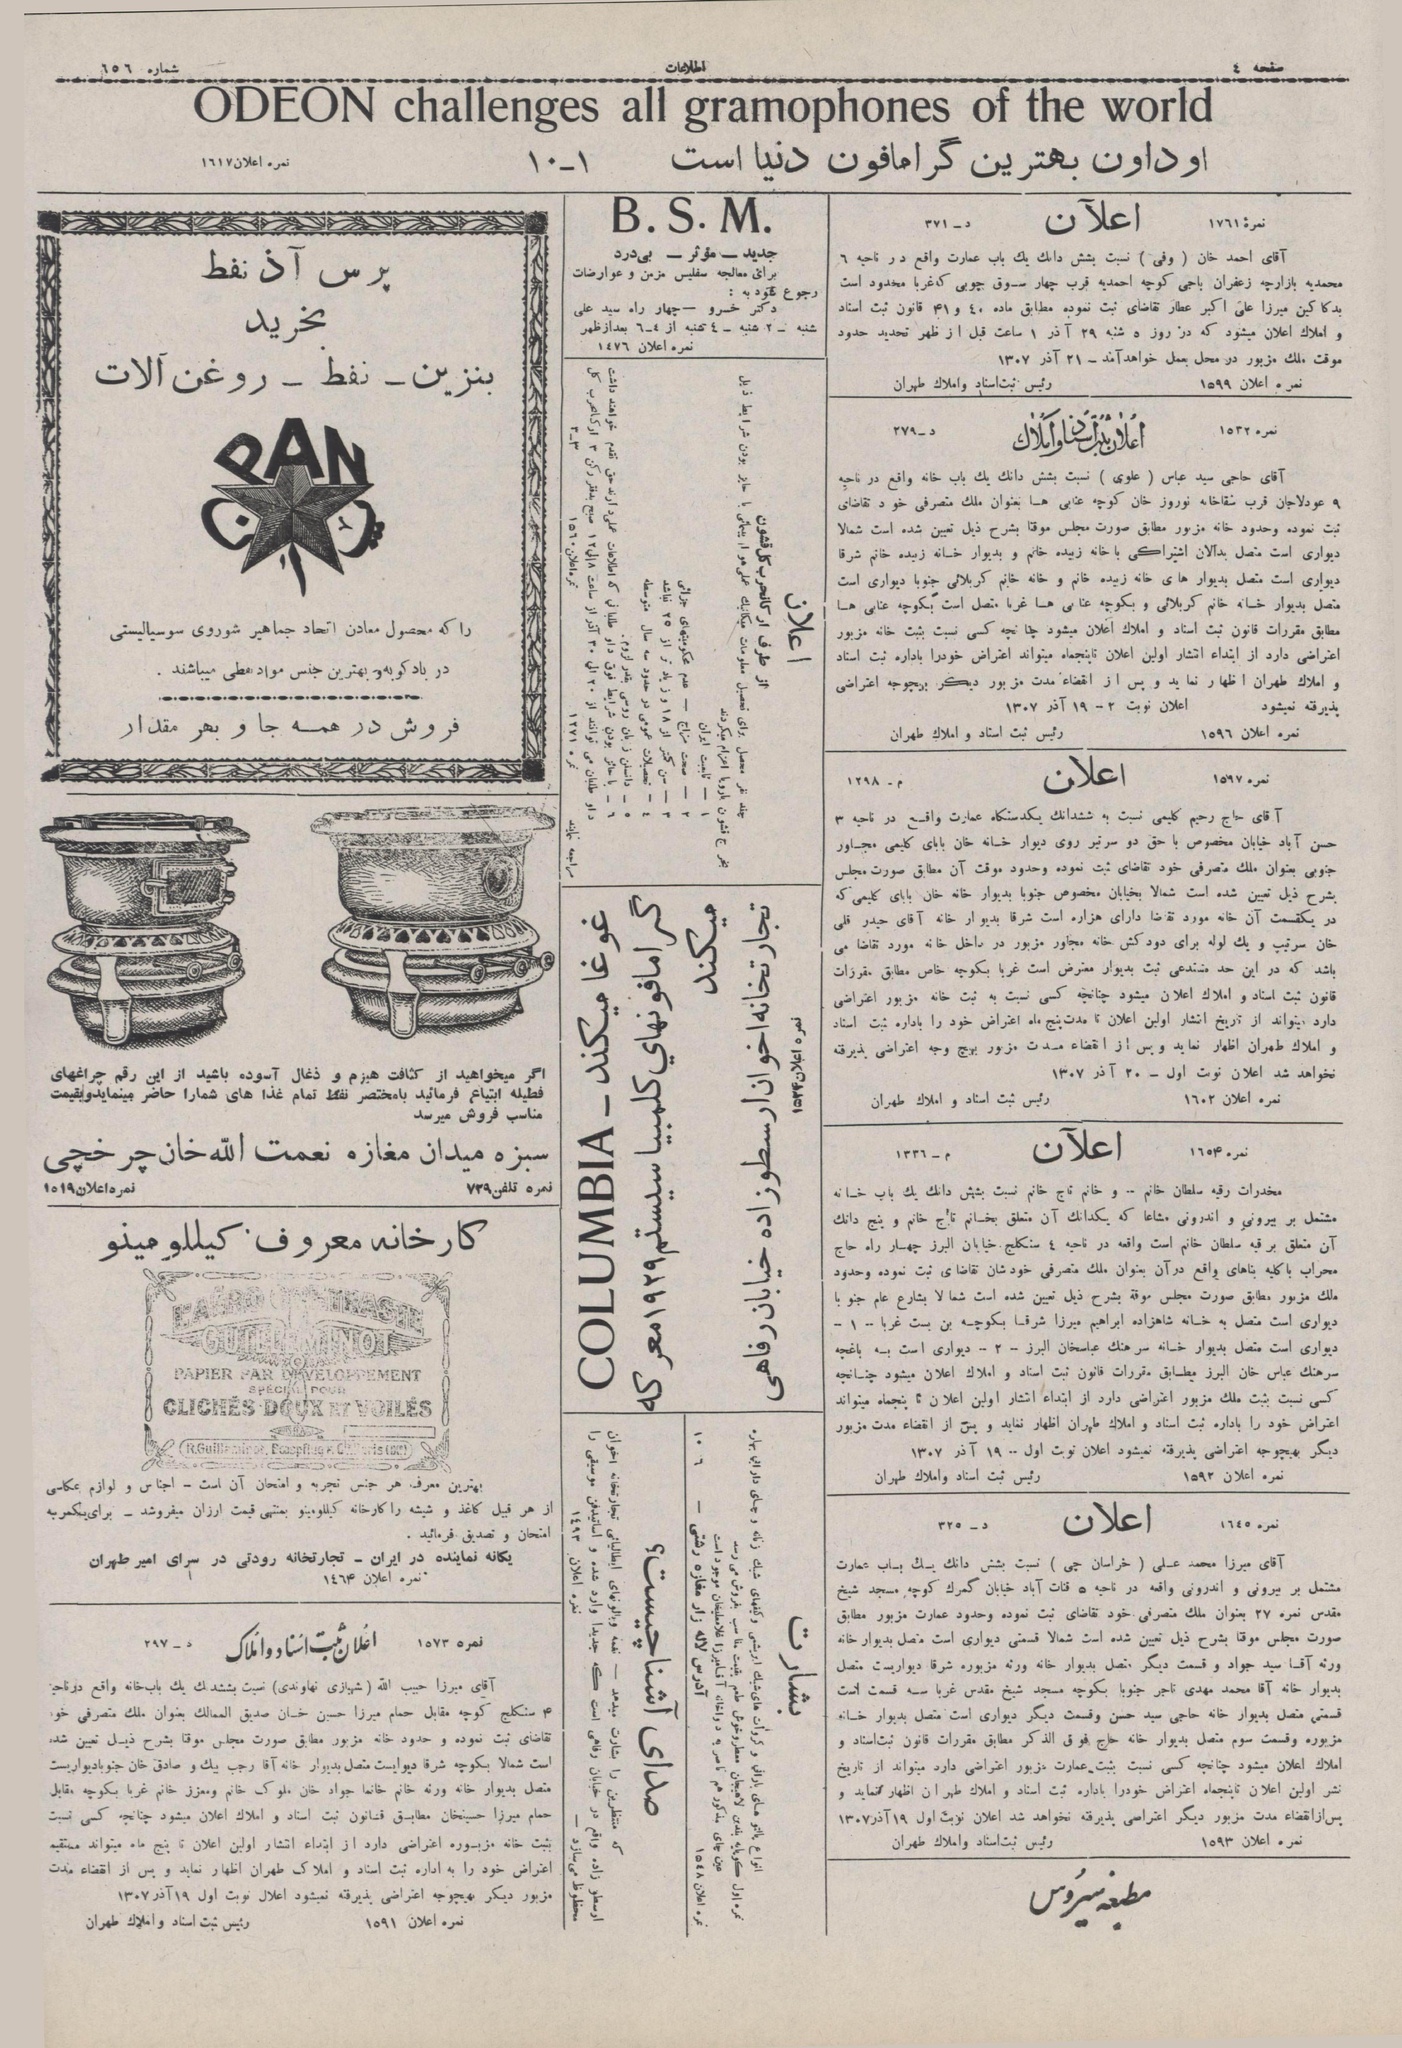 صفحه ٤
اطلاعات
شماره ٦٥٦
ODEON challenges all gramophones of the world
اوداون بهترین گرامافون دنیا است
١ــ١٠
نمره اعلان ١٦١٧
نمرهٔ ١٧٦١
اعلآن
د ــ ٣٧١
آقای احمد خان ( وفی ) نسبت بشش دانك یك باب عمارت واقع در ناحیه ٦
محمدیه بازارچه زعفران باجی کوچه احمدیه قرب چهار سوق چوبی که غربا محدود است
بدکاکین میرزا علی اکبر عطار تقاضای ثبت نموده مطابق ماده ٤٠ و ٤١ قانون ثبت اسناد
و املاك اعلان میشود که در روز ٥ شنبه ٢٩ آذر ١ ساعت قبل از ظهر تحدید حدود
موقت ملك مزبور در محل بعمل خواهد آمد ــ ٢١ آذر ١٣٠٧
نمره اعلان ١٥٩٩
رئیس ثبت اسناد واملاك طهران
نمره ١٥٣٢
اعلان ثبت اسناد و املاك
د ــ ٢٧٩
آقای حاجی سید عباس ( علوی ) نسبت بشش دانك یك باب خانه واقع در ناحیه
٩ عودلاجان قرب سقاخانه نوروز خان کوچه عنابی ها بعنوان ملك متصرفی خود تقاضای
ثبت نموده وحدود خانه مزبور مطابق صورت مجلس موقتا بشرح ذیل تعیین شده است شمالا
دیواری است متصل بدالان اشتراکی با خانه زبیده خانم و بدیوار خانه زبیده خانم شرقا
دیواری است متصل بدیوار های خانه زبیده خانم و خانه خانم کربلائی جنوبا دیواری است
متصل بدیوار خانه خانم کربلائی و بکوچه عنابی ها غربا متصل است بکوچه عنابی ها
مطابق مقررات قانون ثبت اسناد و املاك اعلان میشود چنانچه کسی نسبت بثبت خانه مزبور
اعتراضی دارد از ابتداء انتشار اولین اعلان تا پنجماه میتواند اعتراض خودرا باداره ثبت اسناد
و املاك طهران اظهار نماید و پس از انقضاء مدت مزبور دیگر بهیچوجه اعتراضی
پذیرفته نمیشود اعلان نوبت ٢ ــ ١٩ آذر ١٣٠٧
نمره اعلان ١٥٩٦
رئیس ثبت اسناد و املاك طهران
نمره ١٥٩٧
اعلان
م ــ ١٢٩٨
آقای حاج رحیم کلیمی نسبت به ششدانك یکدستگاه عمارت واقع در ناحیه ٣
حسن آباد خیابان مخصوص با حق دو سرتیر روی دیوار خانه خان بابای کلیمی مجاور
جنوبی بعنوان ملك متصرفی خود تقاضای ثبت نموده وحدود موقت آن مطابق صورت مجلس
بشرح ذیل تعیین شده است شمالا بخیابان مخصوص جنوبا بدیوار خانه خان بابای کلیمی که
در یکقسمت آن خانه مورد تقضا دارای هزاره است شرقا بدیوار خانه آقای حیدر قلی
خان سرتیپ و یك لوله برای دودکش خانه مجاور مزبور در داخل خانه مورد تقاضا می
باشد که در این حد مستدعی ثبت بدیوار معترض است غربا بکوچه خاص مطابق مقررات
قانون ثبت اسناد و املاك اعلان میشود چنانچه کسی نسبت به ثبت خانه مزبور اعتراضی
دارد میتواند از تاریخ انتشار اولین اعلان تا مدت پنج ماه اعتراض خود را باداره ثبت اسناد
و املاك طهران اظهار نماید و پس از انقضاء مدت مزبور بهیچ وجه اعتراضی پذیرفته
نخواهد شد اعلان نوبت اول ــ ٢٠ آذر ١٣٠٧
نمره اعلان ١٦٠٢
رئیس ثبت اسناد و املاك طهران
نمره ١٦٥٤
اعلآن
م ــ ١٣٣٦
مخدرات رقیه سلطان خانم -- و خانم تاج خانم نسبت بشش دانك یك باب خانه
مشتمل بر بیرونی و اندرونی مشاعا که یکدانك آن متعلق بخانم تاج خانم و پنج دانك
آن متعلق برقیه سلطان خانم است واقعه در ناحیه ٤ سنگلج خیابان البرز چهار راه حاج
محراب باکلیه بناهای واقع درآن بعنوان ملك متصرفی خودشان تقاضای ثبت نموده وحدود
ملك مزبور مطابق صورت مجلس موقة بشرح ذیل تعیین شده است شمالا بشارع عام جنوبا
دیواری است متصل به خانه شاهزاده ابراهیم میرزا شرقا بکوچه بن بست غربا -- ١ --
دیواری است متصل بدیوار خانه سرهنك عباسخان البرز -- ٢ -- دیواری است به باغچه
سرهنك عباس خان البرز مطابق مقررات قانون ثبت اسناد و املاك اعلان میشود چنانچه
کسی نسبت بثبت ملك مزبور اعتراضی دارد از ابتداء انتشار اولین اعلان تا پنجماه میتواند
اعتراض خود را باداره ثبت اسناد و املاك طهران اظهار نماید و پس از انقضاء مدت مزبور
دیگر بهیچوجه اعتراضی پذیرفته نمیشود اعلان نوبت اول -- ١٩ آذر ١٣٠٧
نمره اعلان ١٥٩٢
رئیس ثبت اسناد واملاك طهران
نمره ١٦٤٥
اعلان
د ــ ٣٢٥
آقای میرزا محمد علی ( خراسان چی ) نسبت بشش دانك یك باب عمارت
مشتمل بر بیرونی و اندرونی واقعه در ناحیه ٥ قنات آباد خیابان گمرك کوچه مسجد شیخ
مقدس نمره ٢٧ بعنوان ملك متصرفی خود تقاضای ثبت نموده وحدود عمارت مزبور مطابق
صورت مجلس موقتا بشرح ذیل تعیین شده است شمالا قسمتی دیواری است متصل بدیوار خانه
ورثه آقا سید جواد و قسمت دیگر متصل بدیوار خانه ورثه مزبوره شرقا دیواریست متصل
بدیوار خانه آقا محمد مهدی تاجر جنوبا بکوچه مسجد شیخ مقدس غربا سه قسمت است
قسمتی متصل بدیوار خانه حاجی سید حسن وقسمت دیگر دیواری است متصل بدیوار خانه
مزبوره وقسمت سوم متصل بدیوار خانه حاج فوق الذکر مطابق مقررات قانون ثبت اسناد و
املاك اعلان میشود چنانچه کسی نسبت بثبت عمارت مزبور اعتراضی دارد میتواند از تاریخ
نشر اولین اعلان تا پنجماه اعتراض خودرا باداره ثبت اسناد و املاك طهران اظهار نماید و
پس از انقضاء مدت مزبور دیگر اعتراضی پذیرفته نخواهد شد اعلان نوبت اول ١٩ آذر ١٣٠٧
نمره اعلان ١٥٩٣
رئیس ثبت اسناد واملاك طهران
مطبعه سیروس
B. S. M.
جدید ــ مؤثر ــ بی‌درد
برای معالجه سفلیس مزمن و عوارضات
رجوع شود به :
دکتر خسرو ــ چهار راه سید علی
شنبه ــ ٢ شنبه ــ ٤ شنبه از ٤ــ٦ بعدازظهر
نمره اعلان ١٤٧٦
اعلان
از طرف ارکانحرب کل قشون
چند نفر محصل برای تحصیل معلومات میکانیك علمی هوا پیمائی با حائز بودن شرایط ذیل
بخرج قشون باروپا اعزام میگردند
١ ــ تابعیت ایران
٢ ــ صحت مزاج ــ عدم محکومیتهای جزائی
٣ ــ سن کمتر از ١٨ و زیادتر از ٢٥ نباشد
٤ ــ تحصیلات عمومی در حدود سه سال متوسطه
٥ ــ دانستن زبان روسی بقدر لزوم .
٦ ــ با حائز بودن شرایط فوق داوطلبانی که اطلاعات عملی دارند حق تقدم خواهند داشت
داوطلبان می توانند از ٢٠ الی ٣٠ آذر از ساعت ٨ الی ١٢ صبح بدفتر رکن ٣ ارکانحرب کل
مراجعه نمایند
نمره ١٢٧١
نمره اعلان ١٥٦٠
٣ــ٣
غوغا میکند ــ COLUMBIA
گرامافونهای کلمبیا سیستم ١٩٢٩ معرکه
میکند
تجارتخانه اخوان ارسطوزاده خیابان رفاهی
نمره اعلان ١٥٢٤
بشارت
نمره اعلان ١٥٤٨
آدرس لاله زار مغازه رشتی ــ
١٠ــ٦
صدای آشنا چیست؟
که منتظرین را بشارت میدهد ــ نغمه ویالونهای ایطالیائی تجارتخانه اخوان
ارسطو زاده واقع در خیابان رفاهی است که جدیدا وارد شده و اساتیدفن موسیقی را
محظوظ میسازد ــ
نمره اعلان ١٤٩٣
پرس آذ نفط
بخرید
بنزین ــ نفط ــ روغن آلات
PAN
را که محصول معادن اتحاد جماهیر شوروی سوسیالیستی
در بادکوبه و بهترین جنس مواد نفطی میباشند .
فروش در همه جا و بهر مقدار
اگر میخواهید از کثافت هیزم و ذغال آسوده باشید از این رقم چراغهای
فطیله ابتیاع فرمائید بامختصر نفط تمام غذا های شمارا حاضر مینماید وبقیمت
مناسب فروش میرسد
سبزه میدان مغازه نعمت الله خان چرخچی
نمره تلفن ٧٢٩
نمره اعلان ١٥١٩
کارخانه معروف کیللومینو
GUILLEMINOT
PAPIER PAR DÉVELOPPEMENT
SPÉCIAL POUR
CLICHÉS DOUX ET VOILÉS
بهترین معرف هر جنس تجربه و امتحان آن است ــ اجناس و لوازم عکاسی
از هر قبیل کاغذ و شیشه را کارخانه کیللومینو بمنتهی قیمت ارزان میفروشد ــ برای یکمرتبه
امتحان و تصدیق فرمائید .
یگانه نماینده در ایران ــ تجارتخانه رودتی در سرای امیر طهران
نمره اعلان ١٤٦٤
نمره ١٥٧٣
اعلان ثبت اسناد و املاك
د ــ ٢٩٧
آقای میرزا حبیب الله (شهبازی نهاوندی) نسبت بششدانك یك باب خانه واقع در ناحیه
٤ سنگلج کوچه مقابل حمام میرزا حسین خان صدیق الممالك بعنوان ملك متصرفی خود
تقاضای ثبت نموده و حدود خانه مزبور مطابق صورت مجلس موقتا بشرح ذیل تعیین شده
است شمالا بکوچه شرقا دیواریست متصل بدیوار خانه آقا رجب بیك و صادق خان جنوبا دیواریست
متصل بدیوار خانه ورثه خانم خانما جواد خان ملوک خانم ومعزز خانم غربا بکوچه مقابل
حمام میرزا حسینخان مطابق قانون ثبت اسناد و املاك اعلان میشود چنانچه کسی نسبت
بثبت خانه مزبوره اعتراضی دارد از ابتداء انتشار اولین اعلان تا پنج ماه میتواند مستقیم
اعتراض خود را به اداره ثبت اسناد و املاک طهران اظهار نماید و پس از انقضاء مدت
مزبور دیگر بهیچوجه اعتراضی پذیرفته نمیشود اعلان نوبت اول ١٩ آذر ١٣٠٧
نمره اعلان ١٥٩١
رئیس ثبت اسناد و املاك طهران